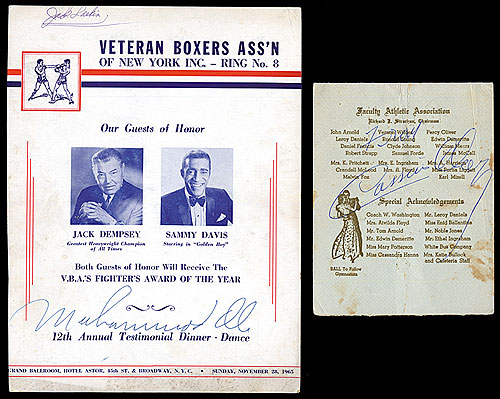 Jack Dempsey
VETERAN BOXERS ASS'N
OF NEW YORK INC. – RING No. 8
Our Guests of Honor
JACK DEMPSEY
Greatest Heavyweight Champion
of All Times
SAMMY DAVIS
Starring in "Golden Boy"
Both Guests of Honor Will Receive The
V.B.A.'S FIGHTER'S AWARD OF THE YEAR
Muhammad Ali
12th Annual Testimonial Dinner - Dance
GRAND BALLROOM, HOTEL ASTOR, 45th ST. & BROADWAY, N.Y.C. • SUNDAY, NOVEMBER 28, 1965
Faculty Athletic Association
Richard F. Strachan, Chairman
John Arnold
Leroy Daniels
Daniel Fatt
Robert Strapp
Clyde Johnson
Samuel Forde
Percy Oliver
Edwin Demeritte
William Moore
James McCall
Mrs. K. Pritchett
Crandell McLeod
Melvin Fox
Mrs. E. Ingraham
Mrs. A. Floyd
Mrs. A. Harrison
Miss Portia
Earl Mizell
Cassius Clay
Special Acknowledgements
Coach W. Washington
Mrs. Alvilda Floyd
Mr. Tom Arnold
Mr. Edwin Demeritte
Miss Mary Patterson
Miss Cassandra Hanna
Mr. Leroy Daniels
Miss Enid Ballantine
Mr. Noble Jones
Mrs Ethel Ingraham
White Bus Company
Mrs. Katie Bullock
and Cafeteria Staff
BALL To Follow
Gymnasium